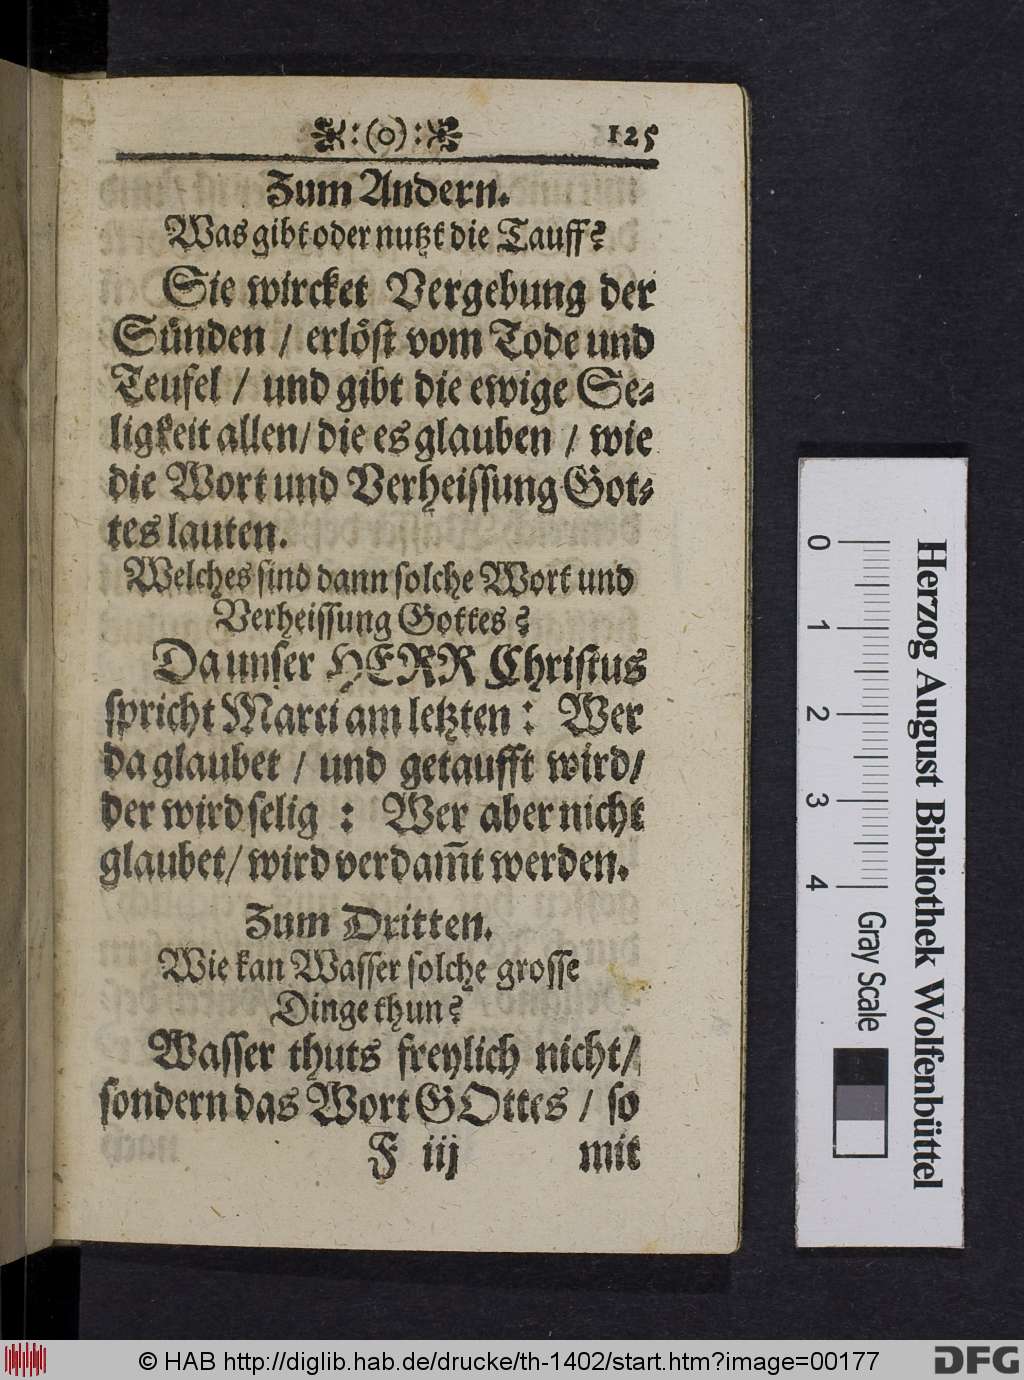 :(o): 125
Zum Andern.
Was gibt oder nutzt die Tauff?
Sie wircket Vergebung der
Sünden / erlöst vom Tode und
Teufel / und gibt die ewige Se-
ligkeit allen / die es glauben / wie
die Wort und Verheissung Got-
tes lauten.
Welches sind dann solche Wort und
Verheissung Gottes?
Da unser HERR Christus
spricht Marci am letzten: Wer
da glaubet / und getaufft wird /
der wird selig: Wer aber nicht
glaubet / wird verdam̃t werden.
Zum Dritten.
Wie kan Wasser solche grosse
Dinge thun?
Wasser thuts freylich nicht /
sondern das Wort GOttes / so
F iij mit
Herzog August Bibliothek Wolfenbüttel
0 1 2 3 4 Gray Scale
© HAB http://diglib.hab.de/drucke/th-1402/start.htm?image=00177
DFG